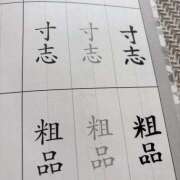 寸志 寸志 寸志
粗品 粗品 粗品